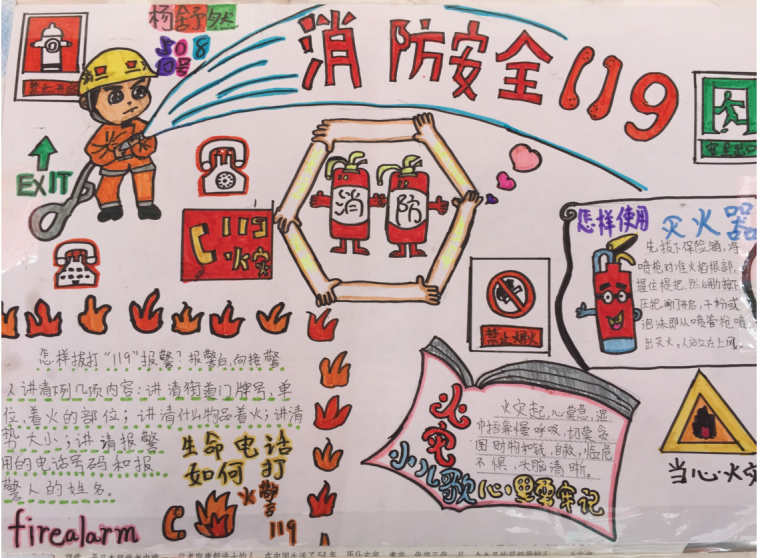 杨舒然
508
10号
消防安全119
EXIT
119
火灾
消 防
怎样使用 灭火器
先拔下保险销,将
喷枪对准火焰根部,
握住提把,
干粉或
泡沫即从喷管
出灭火,人站立在上风。
怎样拨打“119”报警?报警时,向接警
人讲清列几项内容:讲清街道门牌号,单
位,着火的部位;讲清什么物品着火;讲清
势大小;讲清报警
用的电话号码和报
警人的姓名。
生命电话
如何打
火警
119
firealarm
火灾
小儿歌
火灾起,心莫急,湿
巾捂鼻慢呼吸,切莫贪
图财物和钱,自救,临危
不惧,大脑清晰。
心里要牢记
当心火灾